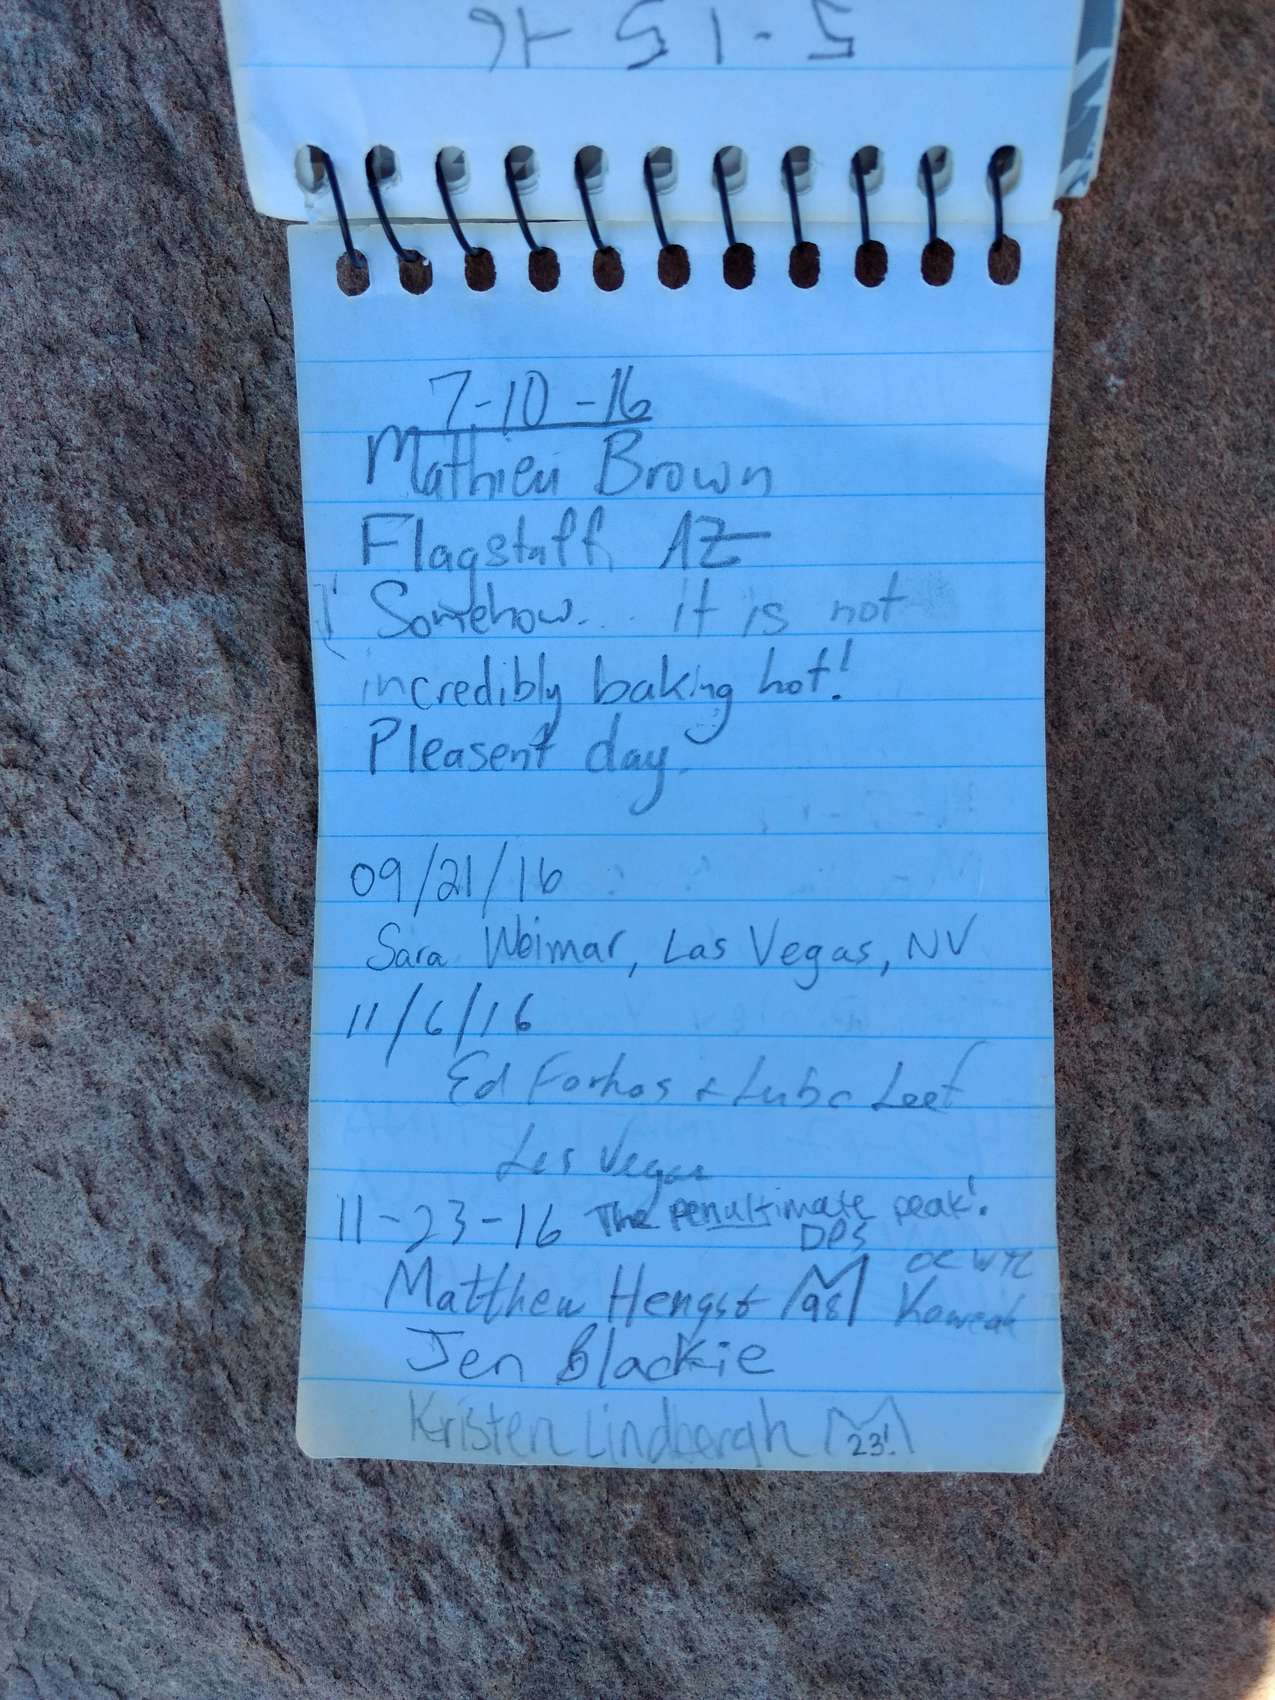 5-15-16
7-10-16
Mathieu Brown
Flagstaff AZ
Somehow... it is not
incredibly baking hot!
Pleasent day.
09/21/16
Sara Weimar, Las Vegas, NV
11/6/16
Ed Forkos & Luba Leef
Las Vegas
11-23-16 The penultimate peak!
DPS
Matthew Hengst 98 OC WTC Kaweah
Jen Blackie
Kristen Lindbergh 23!